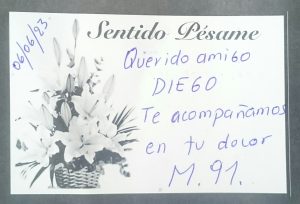 Sentido Pésame
06/06/23.
Querido amigo
DIEGO
Te acompañamos
en tu dolor
M. 91.